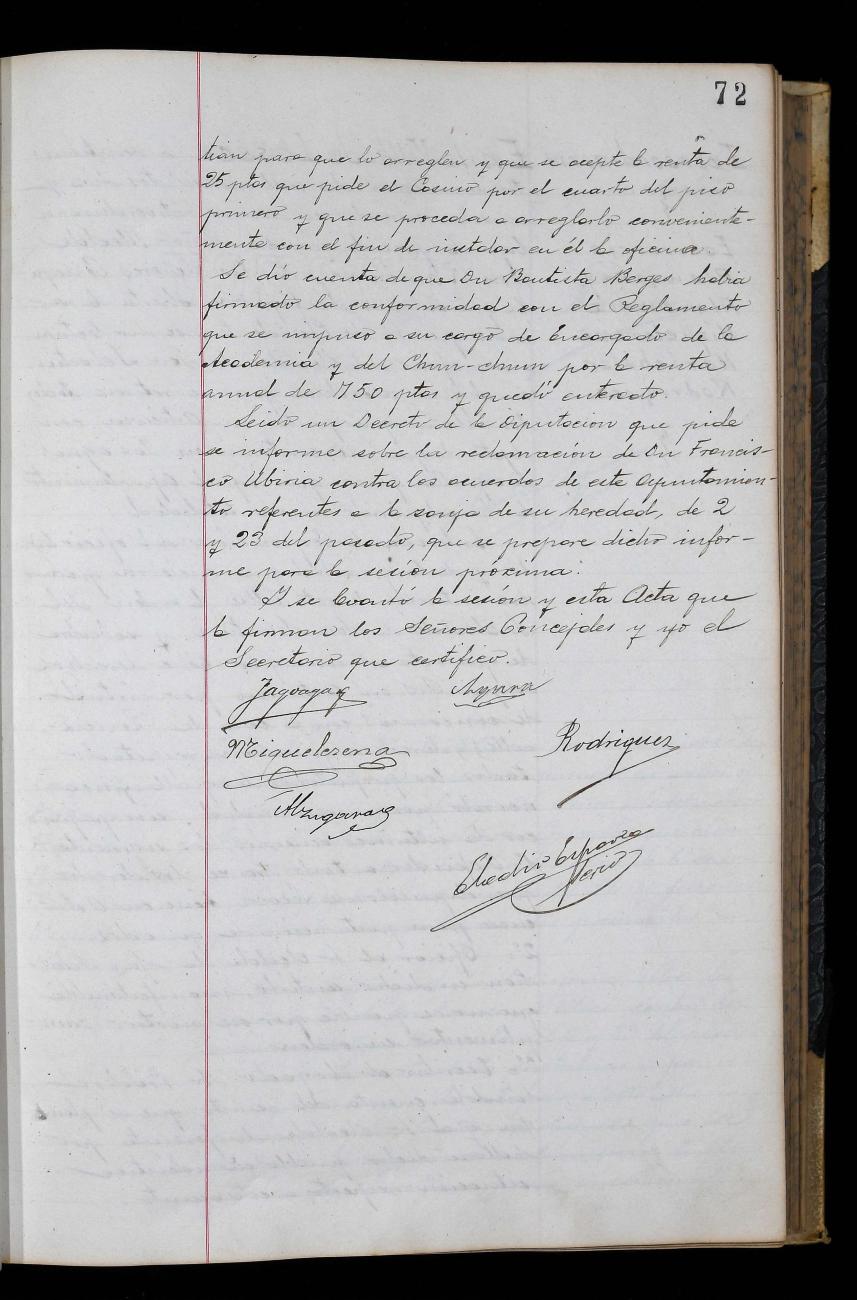 72
tian para que lo arreglen y que se acepte la renta de
25 ptas que pide el Casino por el cuarto del piso
primero y que se proceda a arreglarlo conveniente-
mente con el fin de instalar en él la oficina.
Se dió cuenta de que Dn Bautista Berges habia
firmado la conformidad con el Reglamento
que se impuso a su cargo de Encargado de la
Academia y del Chun-chun por la renta
anual de 1750 ptas y quedó enterado.
Leido un Decreto de la Diputacion que pide
se informe sobre la reclamación de Dn Francis-
co Ubiria contra los acuerdos de este Ayuntamien-
to referentes a la zanja de su heredad, de 2
y 23 del pasado, que se prepare dicho infor-
me para la sesión próxima.
Y se levantó la sesión y esta Acta que
la firman los Señores Concejales y yo el
Secretario que certifico.
Miquelezena
Rodriguez
Eladio Esparza
Serio